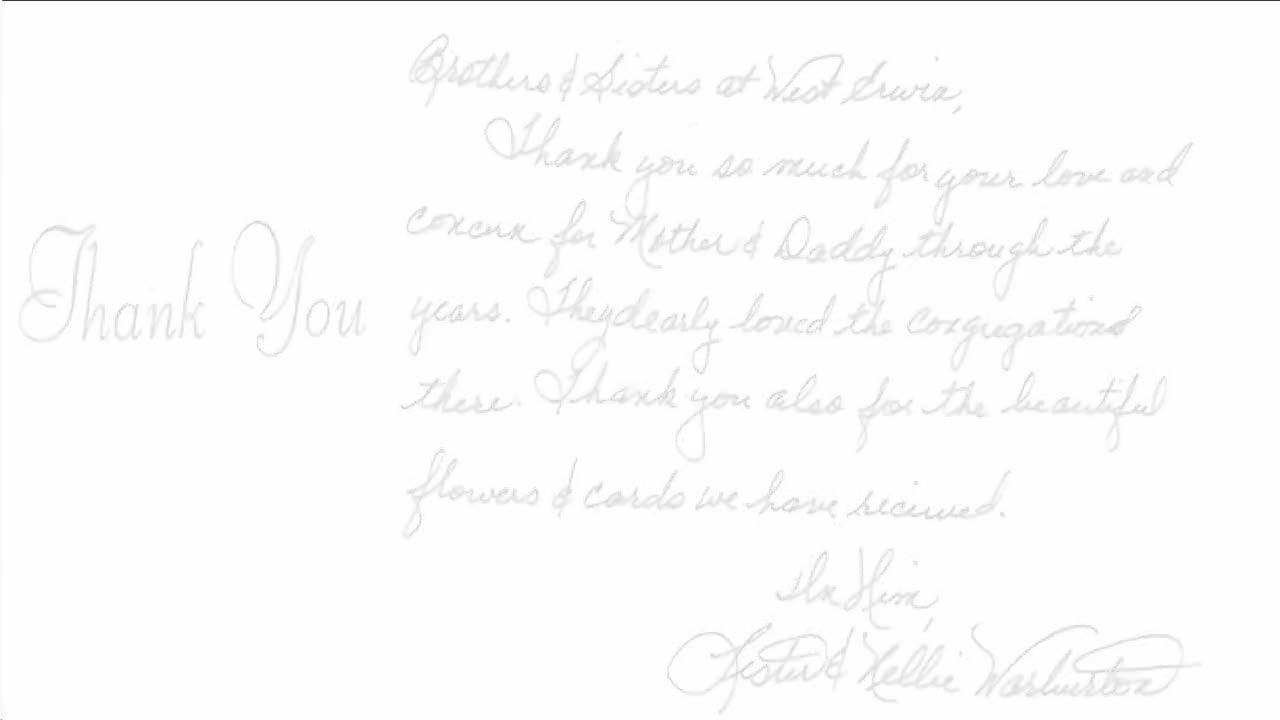 Thank You
Brothers & Sisters at West Erwin,
Thank you so much for your love and
concern for Mother & Daddy through the
years. They dearly loved the congregation
there. Thank you also for the beautiful
flowers & cards we have received.
In Him,
Lester & Nellie Warburton